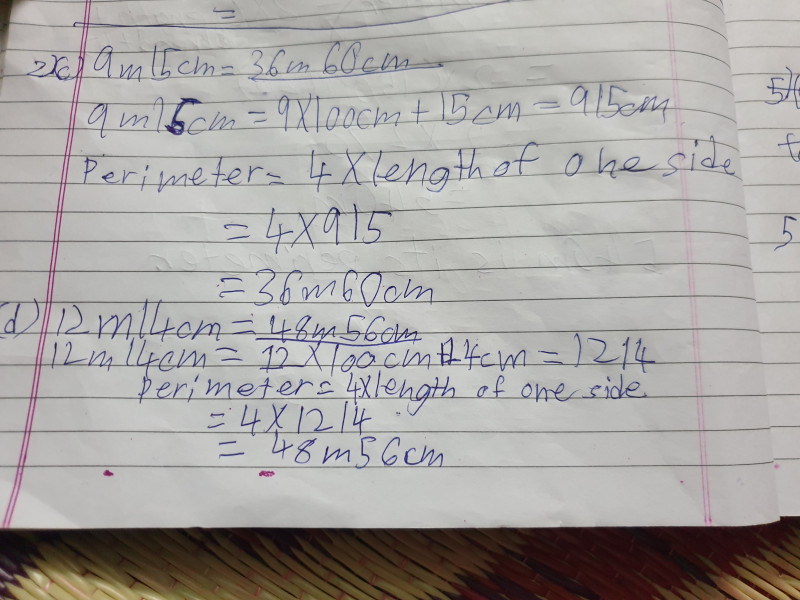 =
2)(c) 9m15cm = 36m60cm
9m15cm = 9X100cm + 15cm = 915cm
Perimeter = 4 X length of one side
= 4X915
= 36m60cm
(d) 12m14cm = 48m56cm
12m14cm = 12 X 100cm + 14cm = 1214
Perimeter = 4X length of one side
= 4 X 1214
= 48m56cm
5)(
5